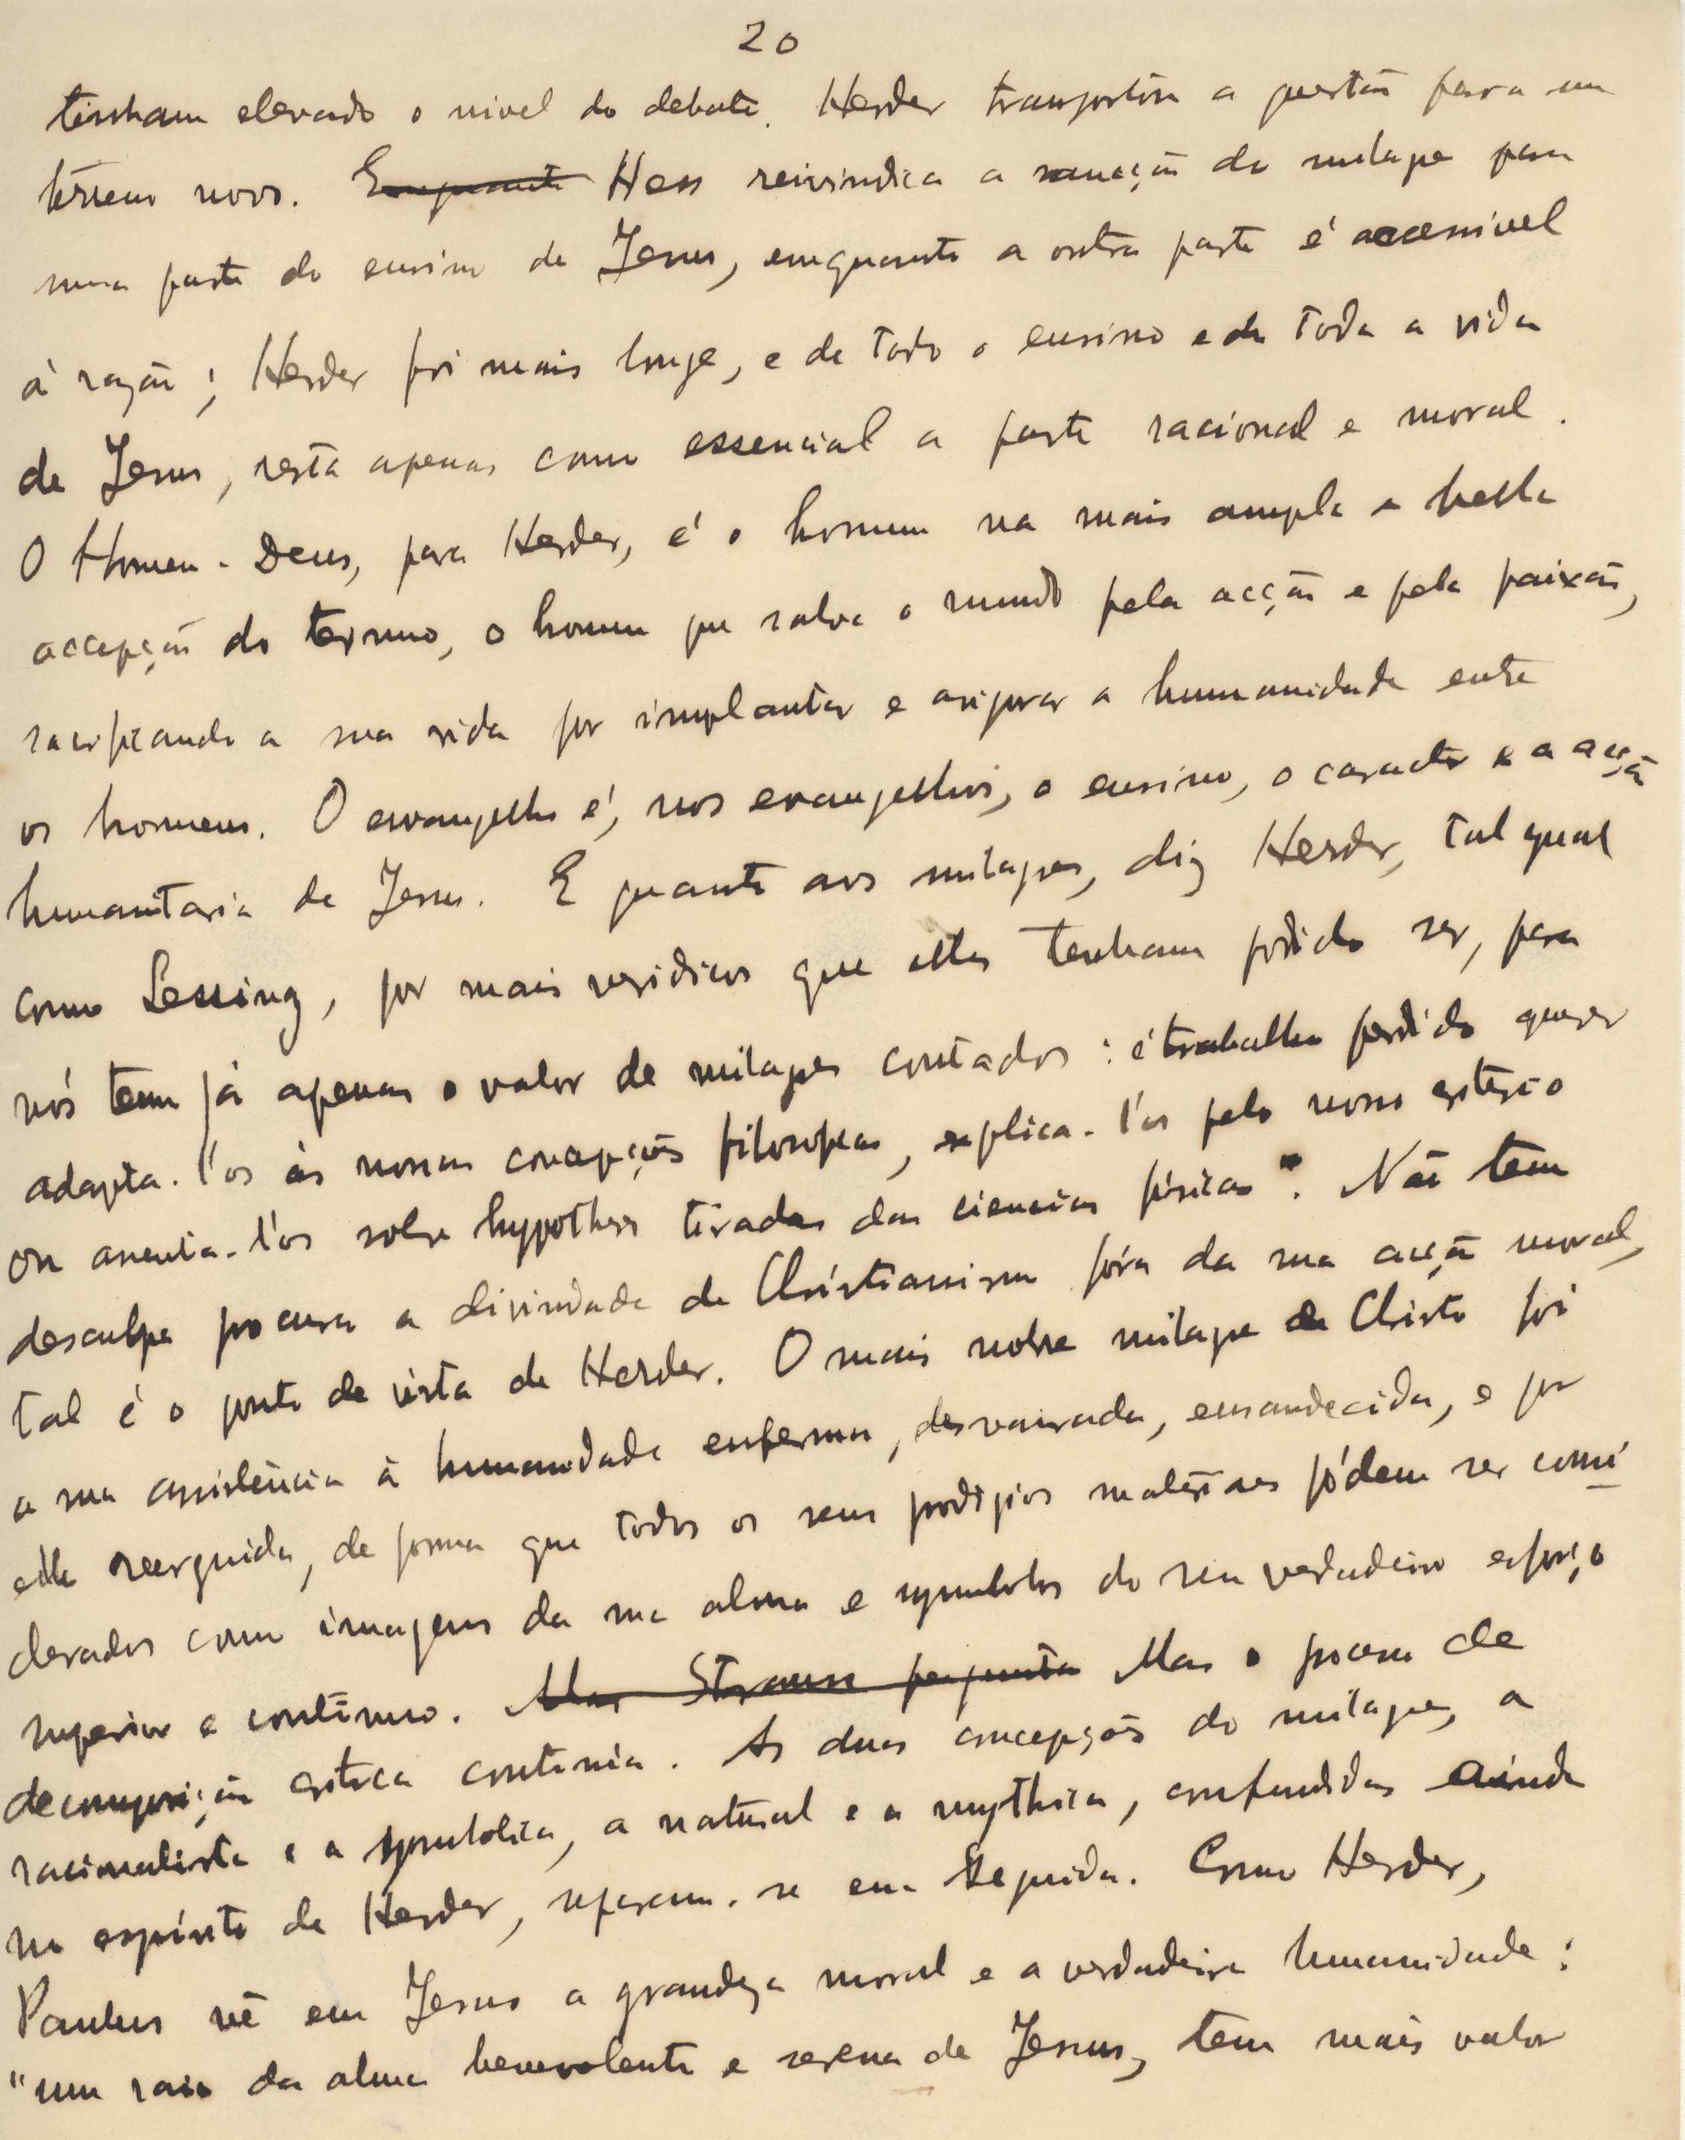 20
tinham elevado o nivel do debate. Herder transportou a questão para um
terreno novo. Emquanto Hess reivindica a sancção do milagre para
uma parte do ensino de Jesus, emquanto a outra parte é accessivel
á razão; Herder foi mais longe, e de todo o ensino e de toda a vida
de Jesus, resta apenas como essencial a parte racional e moral.
O Homem-Deus, para Herder, é o homem na mais ampla e bella
accepção do termo, o homem que salva o mundo pela acção e pela paixão,
sacrificando a sua vida por implantar e assegurar a humanidade entre
os homens. O evangelho é, nos evangelhos, o ensino, o caracter e a acção
humanitaria de Jesus. E quanto aos milagres, diz Herder, tal qual
como Lessing, por mais veridicos que elles tenham podido ser, para
nós tem já apenas o valor de milagres contados: é trabalho perdido querer
adapta-l'os ás nossas concepções filosoficas, explica-l'os pelo nosso criterio
ou assenta-l'os sobre hypotheses tiradas das ciencias físicas". Não tem
desculpa procurar a divindade do Christianismo fóra da sua acção moral,
tal é o ponto de vista de Herder. O mais nobre milagre de Christo foi
a sua assistência á humanidade enferma, desvairada, ensandecida, e por
elle reerguida, de forma que todos os seus prodigios materiaes pódem ser consi-
derados como imagens da sua alma e symbolos do seu verdadeiro esforço
superior e continuo. Mas Strauss pergunta Mas o processo de
decomposição critica continúa. As duas concepções do milagre, a
racionalista e a symbolica, a natural e a mythica, confundidas ainda
no espirito de Herder, separam-se em seguida. Como Herder,
Paulus vê em Jesus a grandeza moral e a verdadeira humanidade:
"um raio da alma benevolente e serena de Jesus, tem mais valor